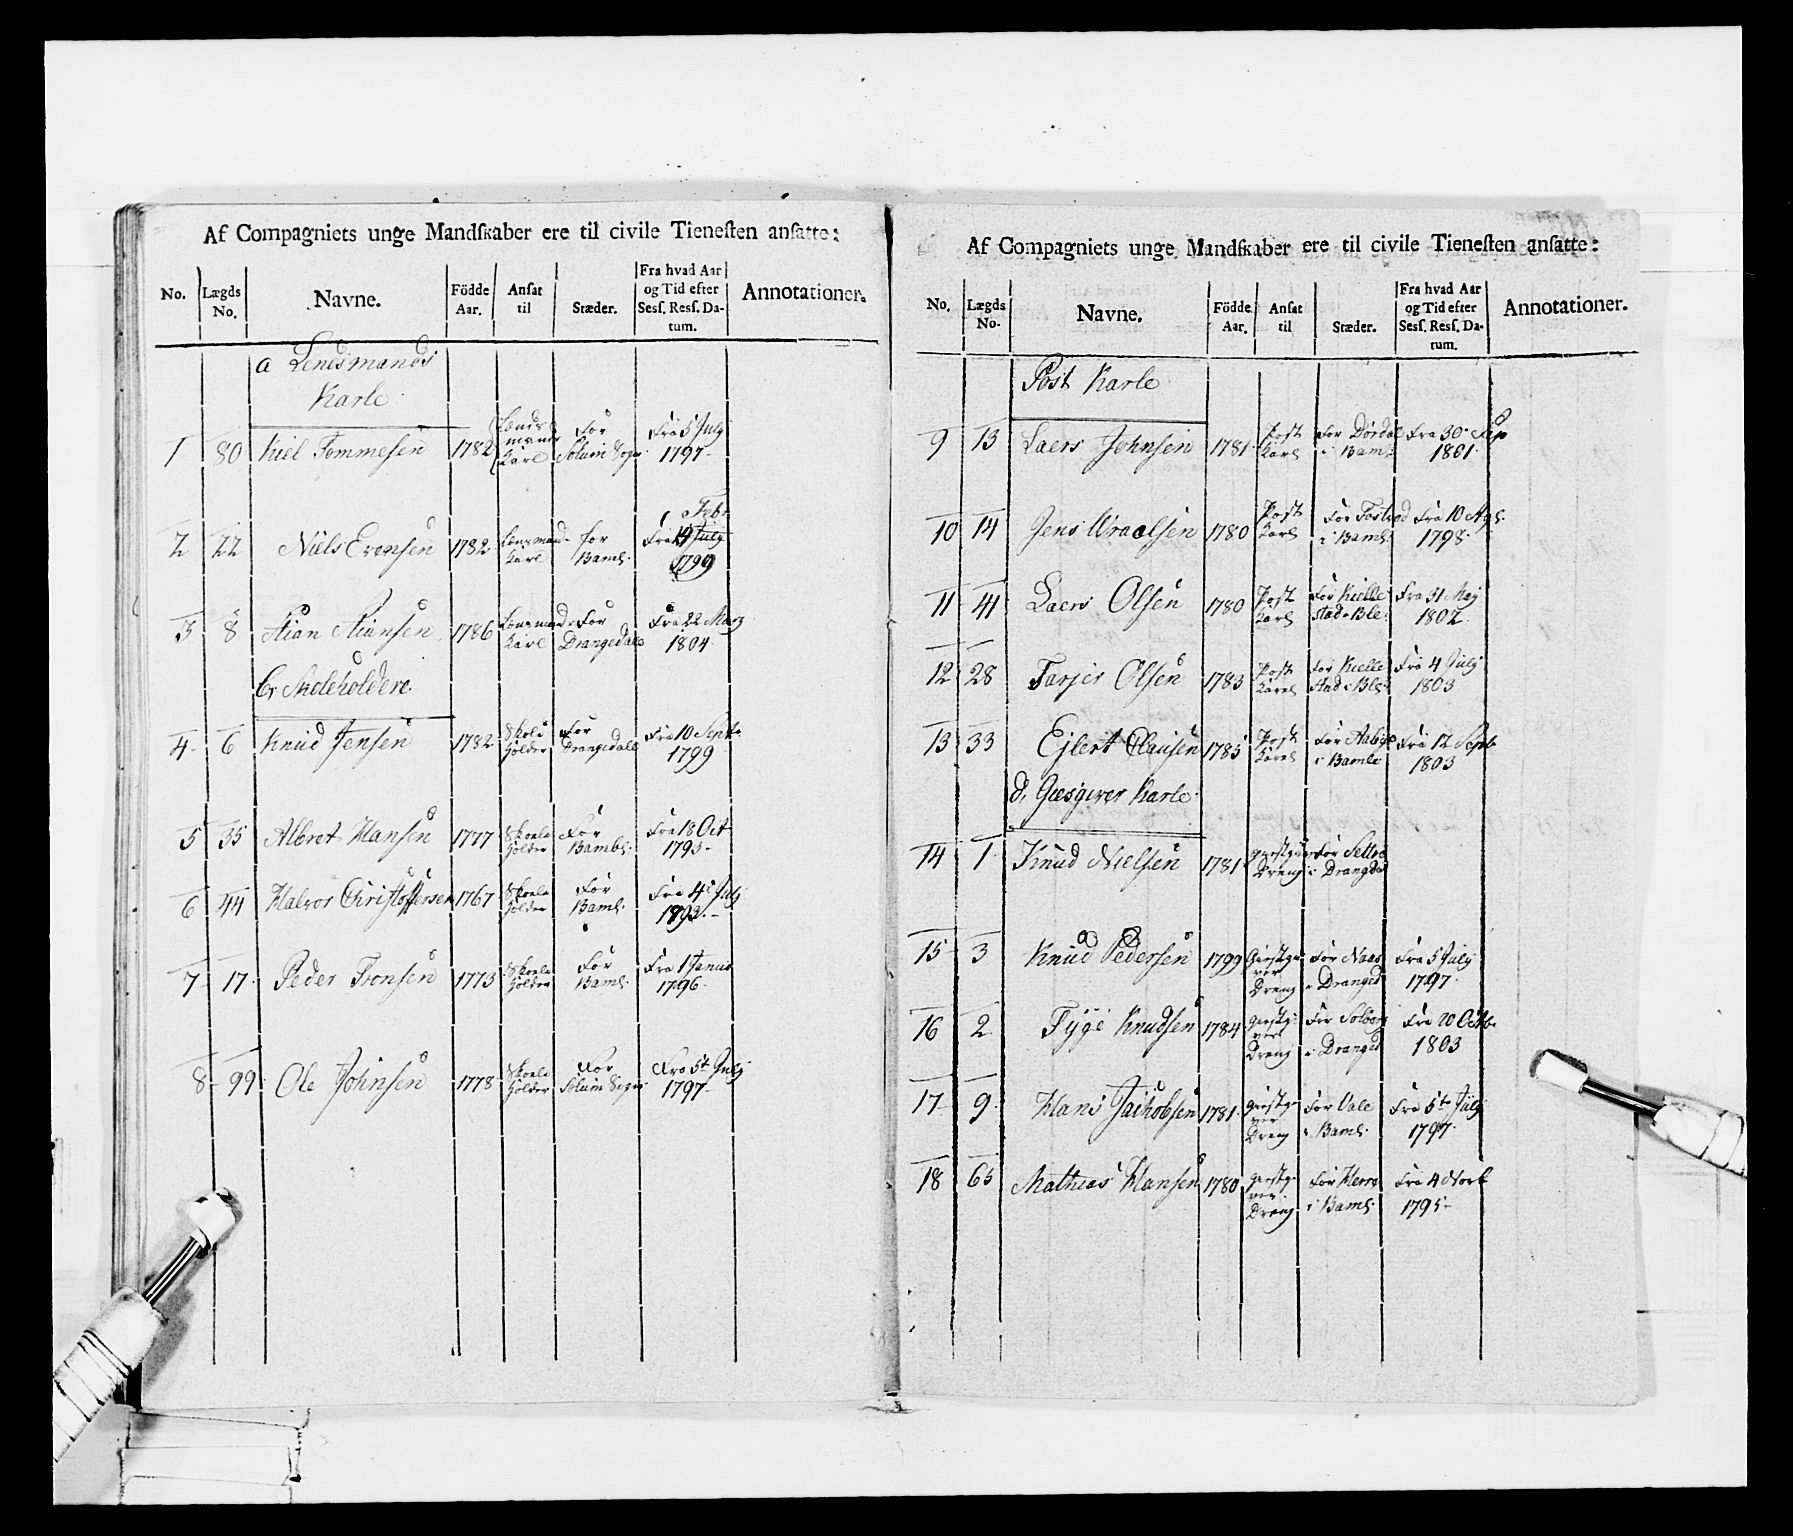 Af Compagniets unge Mandskaber ere til civile Tienesten ansatte:
No. Lægds No. Navne. Födde Aar. Ansat til Stæder. Fra hvad Aar og Tid efter Sess. Ress. Datum. Annotationer.
a Lensmands Karle
1 80 Kiel Tommesen 1782 Lændsmands Karl For Solum Sogn Fra 5 July 1797
2 22 Niels Evensen 1782 Karl for Bamb. Fra 14 Febr 1799
3 8 1786 Karl For Drangedale Fra 22 Marz 1804
b, Skoleholdere
4 6 Knud Jensen 1782 Skole Holder For Drangedale Fra 10 Septr 1799
5 35 Albret Hansen 1777 Skoele Holder For Bamble Fra 18 Oct 1793
6 44 Halvor Christoffersen 1767 Skoele Holder For Baml. Fra 4 July
7 17 Peder Tronsen 1773 Skoele Holder For Baml. Fra 1 Januar 1796
8 99 Ole Johnsen 1778 Skoele Holder For Solum Sogn Fra 5t July 1797
Af Compagniets unge Mandskaber ere til civile Tienesten ansatte:
No. Lægds No. Navne. Födde Aar. Ansat til Stæder. Fra hvad Aar og Tid efter Sess. Ress. Datum. Annotationer.
Post Karle
9 13 Laers Johnsen 1781 Post Karl For Dördal i Baml. Fra 30 Sep 1801
10 14 Jens Wraalsen 1780 Post Karl For i Baml. Fra 10 1798
11 41 Laers Olsen 1780 Post Karl For Kiellestad i Ble: Fra 31 May 1802
12 28 Tarjer Olsen 1783 Post Karl For Kiellestad i Ble: Fra 4 July 1803
13 33 Ejlert Clausen 1785 Post Karl For i Bamle Fra 12 Septb 1803
d, Giesgiver Karle
14 1 Knud Nielsen 1781 Dreng For i Drangdal
15 3 Knud Pedersen 1799 Giestgiver Dreng For Naas i Dranged Fra 5 July 1797
16 2 Tyge Knudsen 1784 Giestgiver Dreng For Solberg i Dranged Fra 20 Octb. 1803
17 9 Hans Jackobsen 1781 Giestgiver Dreng For Vale i Baml. Fra 5te July 1797
18 65 Mathias Hansen 1780 Giestgiver Dreng For Herre i Baml. Fra 4 1795